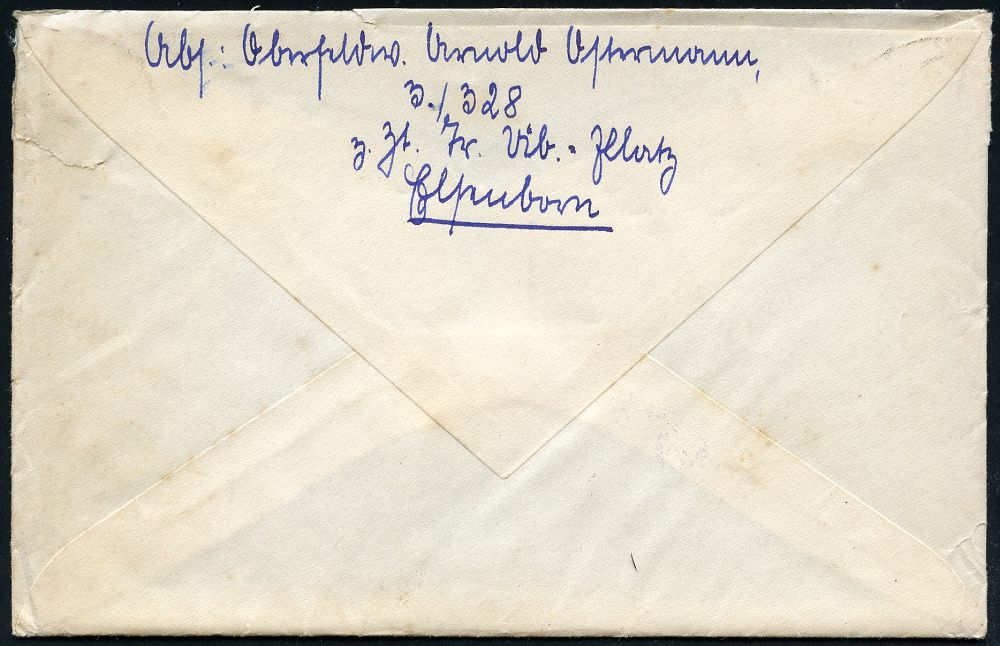 Abs.: Oberfeldw. Arnold Ostermann,
3./328
z. Zt. Tr. Üb.-Platz
Elsenborn